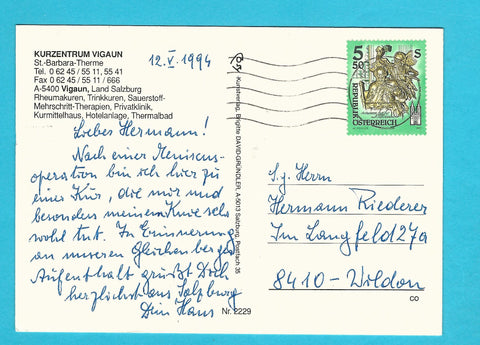 KURZENTRUM VIGAUN
St.-Barbara-Therme
Tel. 0 62 45 / 55 11, 55 41
Fax 0 62 45 / 55 11 / 666
A-5400 Vigaun, Land Salzburg
Rheumakuren, Trinkkuren, Sauerstoff-
Mehrschritt-Therapien, Privatklinik,
Kurmittelhaus, Hotelanlage, Thermalbad
12.V.1994
Lieber Hermann!
Nach einer Meniscus-
operation bin ich hier zu
einer Kur, die mir und
besonders meinem Knie sehr
wohl tut. In Erinnerung
an unseren Gleichenberger
Aufenthalt grüßt Dich
herzlichst aus Salzburg
Dein Hans
Nr. 2229
Kunstverlag Brigitte DAVID-GRÜNDLER, A-5013 Salzburg, Postfach 35
5 50 S
REPUBLIK
ÖSTERREICH
S.g. Herrn
Hermann Riederer
Im Langfeld 27a
8410-Wildon
CO